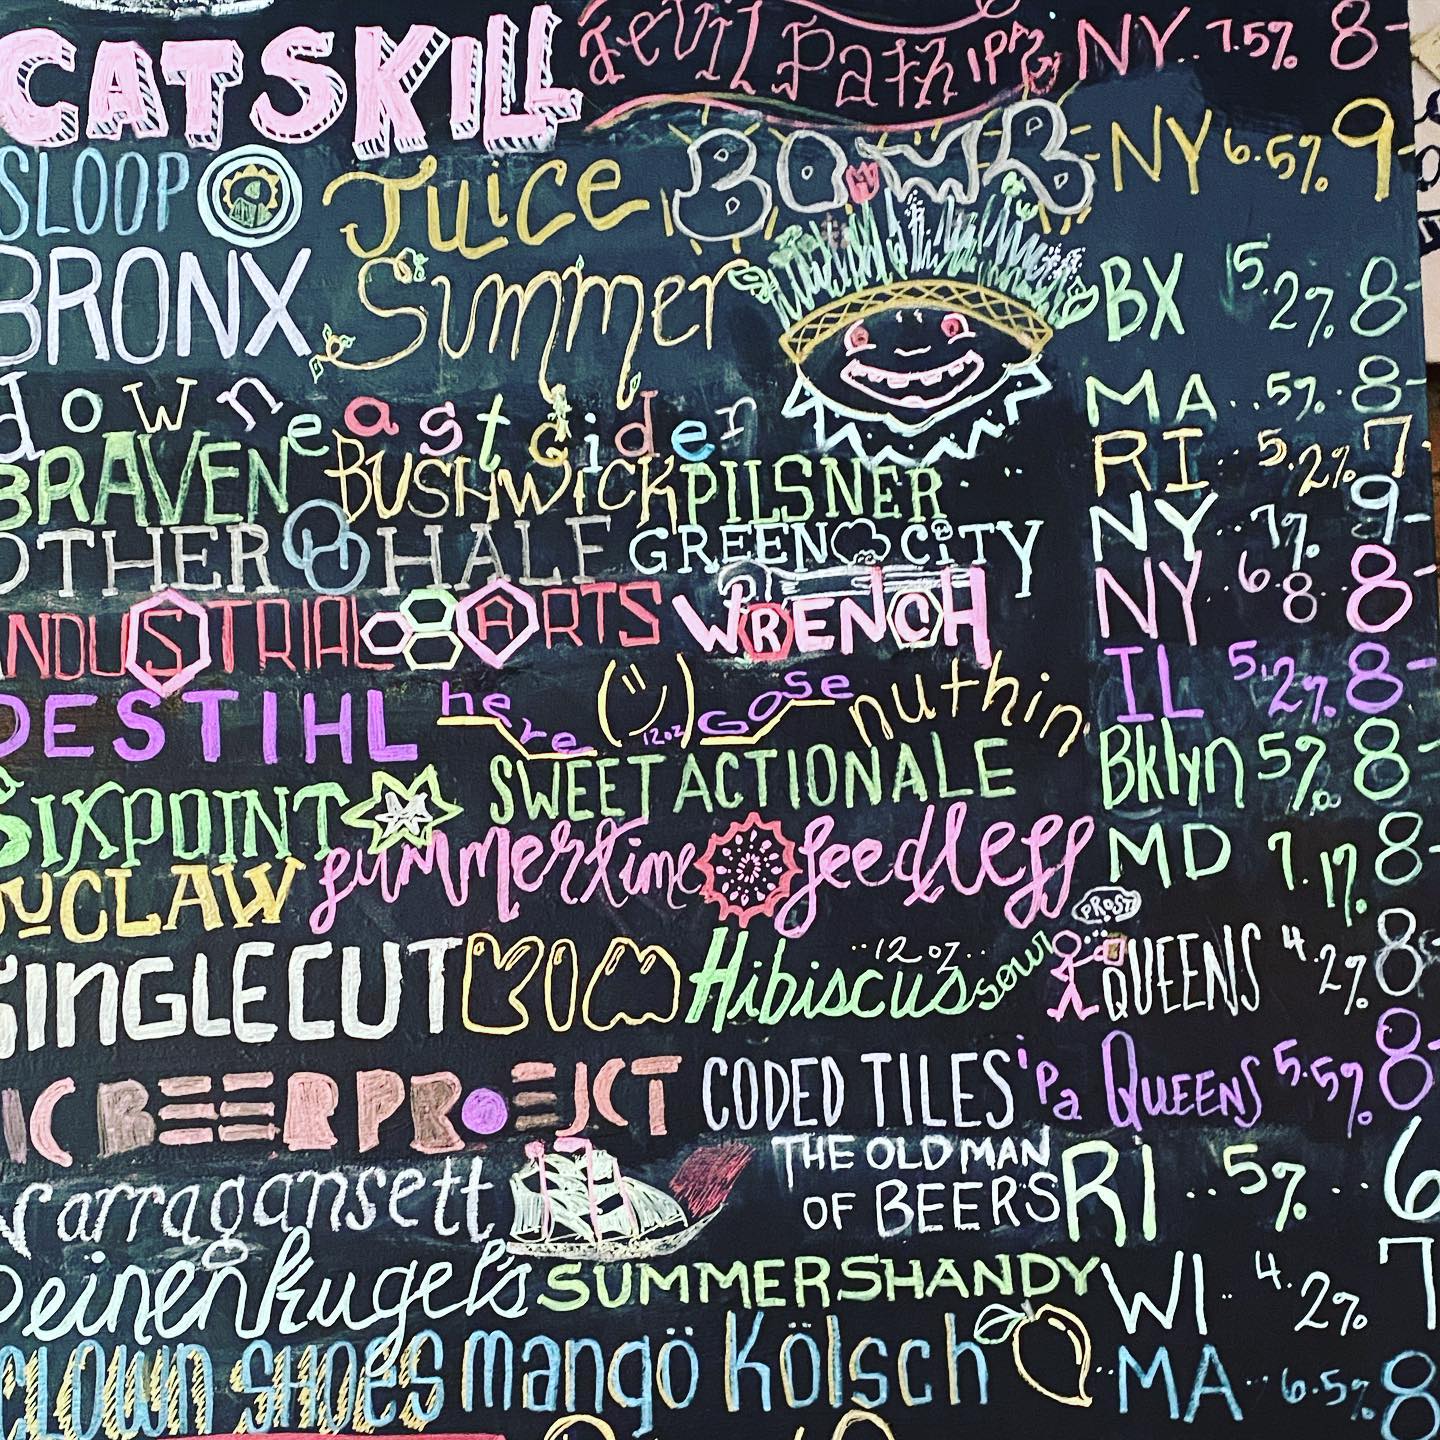 CATSKILL Devil Path IPA NY.. 7.5% 8-
SLOOP Juice BOMB NY 6.5% 9
BRONX Summer BX 5.2% 8-
downeast cider MA..5%..8-
BRAVEN BUSHWICK PILSNER RI..5.2% 7-
OTHER HALF GREEN CITY NY..7% 9-
INDUSTRIAL ARTS WRENCH NY 6.8 8-
DESTIHL here Gose nuthin IL 5.2% 8-
12oz
SIXPOINT SWEET ACTION ALE Bklyn 5% 8-
DuCLAW summertime seedless MD 7.1% 8-
PROST!
SINGLECUT KIM Hibiscus sour QUEENS 4.2% 8-
..12 oz..
IC BEER PROJECT CODED TILES ipa QUEENS 5.5% 8-
Narragansett THE OLD MAN OF BEERS RI..5%..6
Leinenkugel's SUMMER SHANDY WI..4.2% 7
CLOWN SHOES mangö Kölsch..MA..6.5% 8